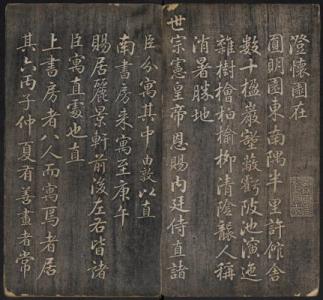 澄懷園在
圓明園東南隅半里許館舍
數十楹巖壑蔽虧陂池演迤
雜樹檜柏榆柳清陰襲人稱
消暑勝地
世宗憲皇帝恩賜內廷侍直諸
臣分寓其中由敦以直
南書房來寓至庚午
賜居麗景軒前後左右皆諸
臣寓直處也直
上書房者八人而寓焉者居
其六丙子仲夏有善畫者常